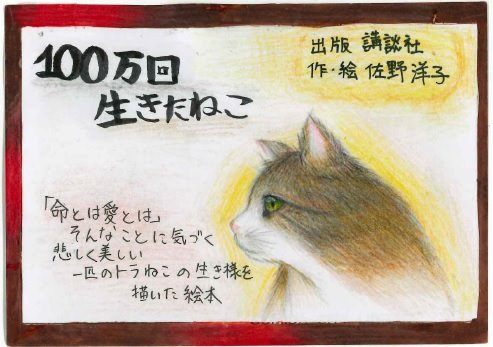 100万回
生きたねこ
出版 講談社
作・絵 佐野洋子
「命とは愛とは」
そんなことに気づく
悲しく美しい
一匹のトラねこの生き様を
描いた絵本